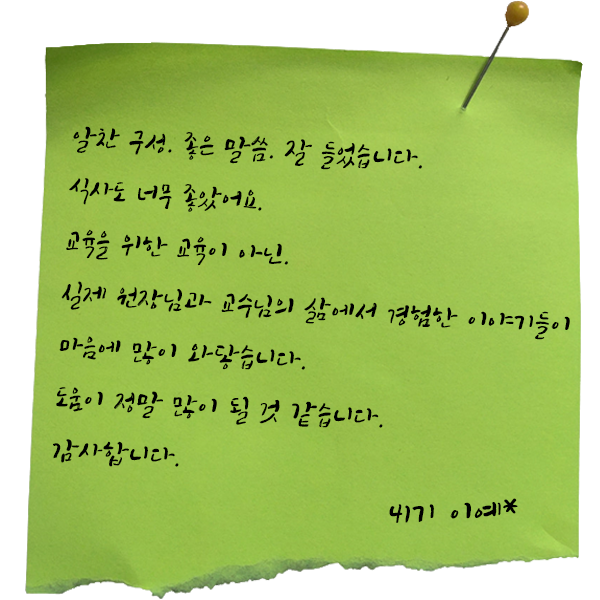 알찬 구성. 좋은 말씀. 잘 들었습니다.
식사도 너무 좋았어요.
교육을 위한 교육이 아닌.
실제 원장님과 교수님의 삶에서 경험한 이야기들이
마음에 많이 와닿습니다.
도움이 정말 많이 될 것 같습니다.
감사합니다.
4기 이예*